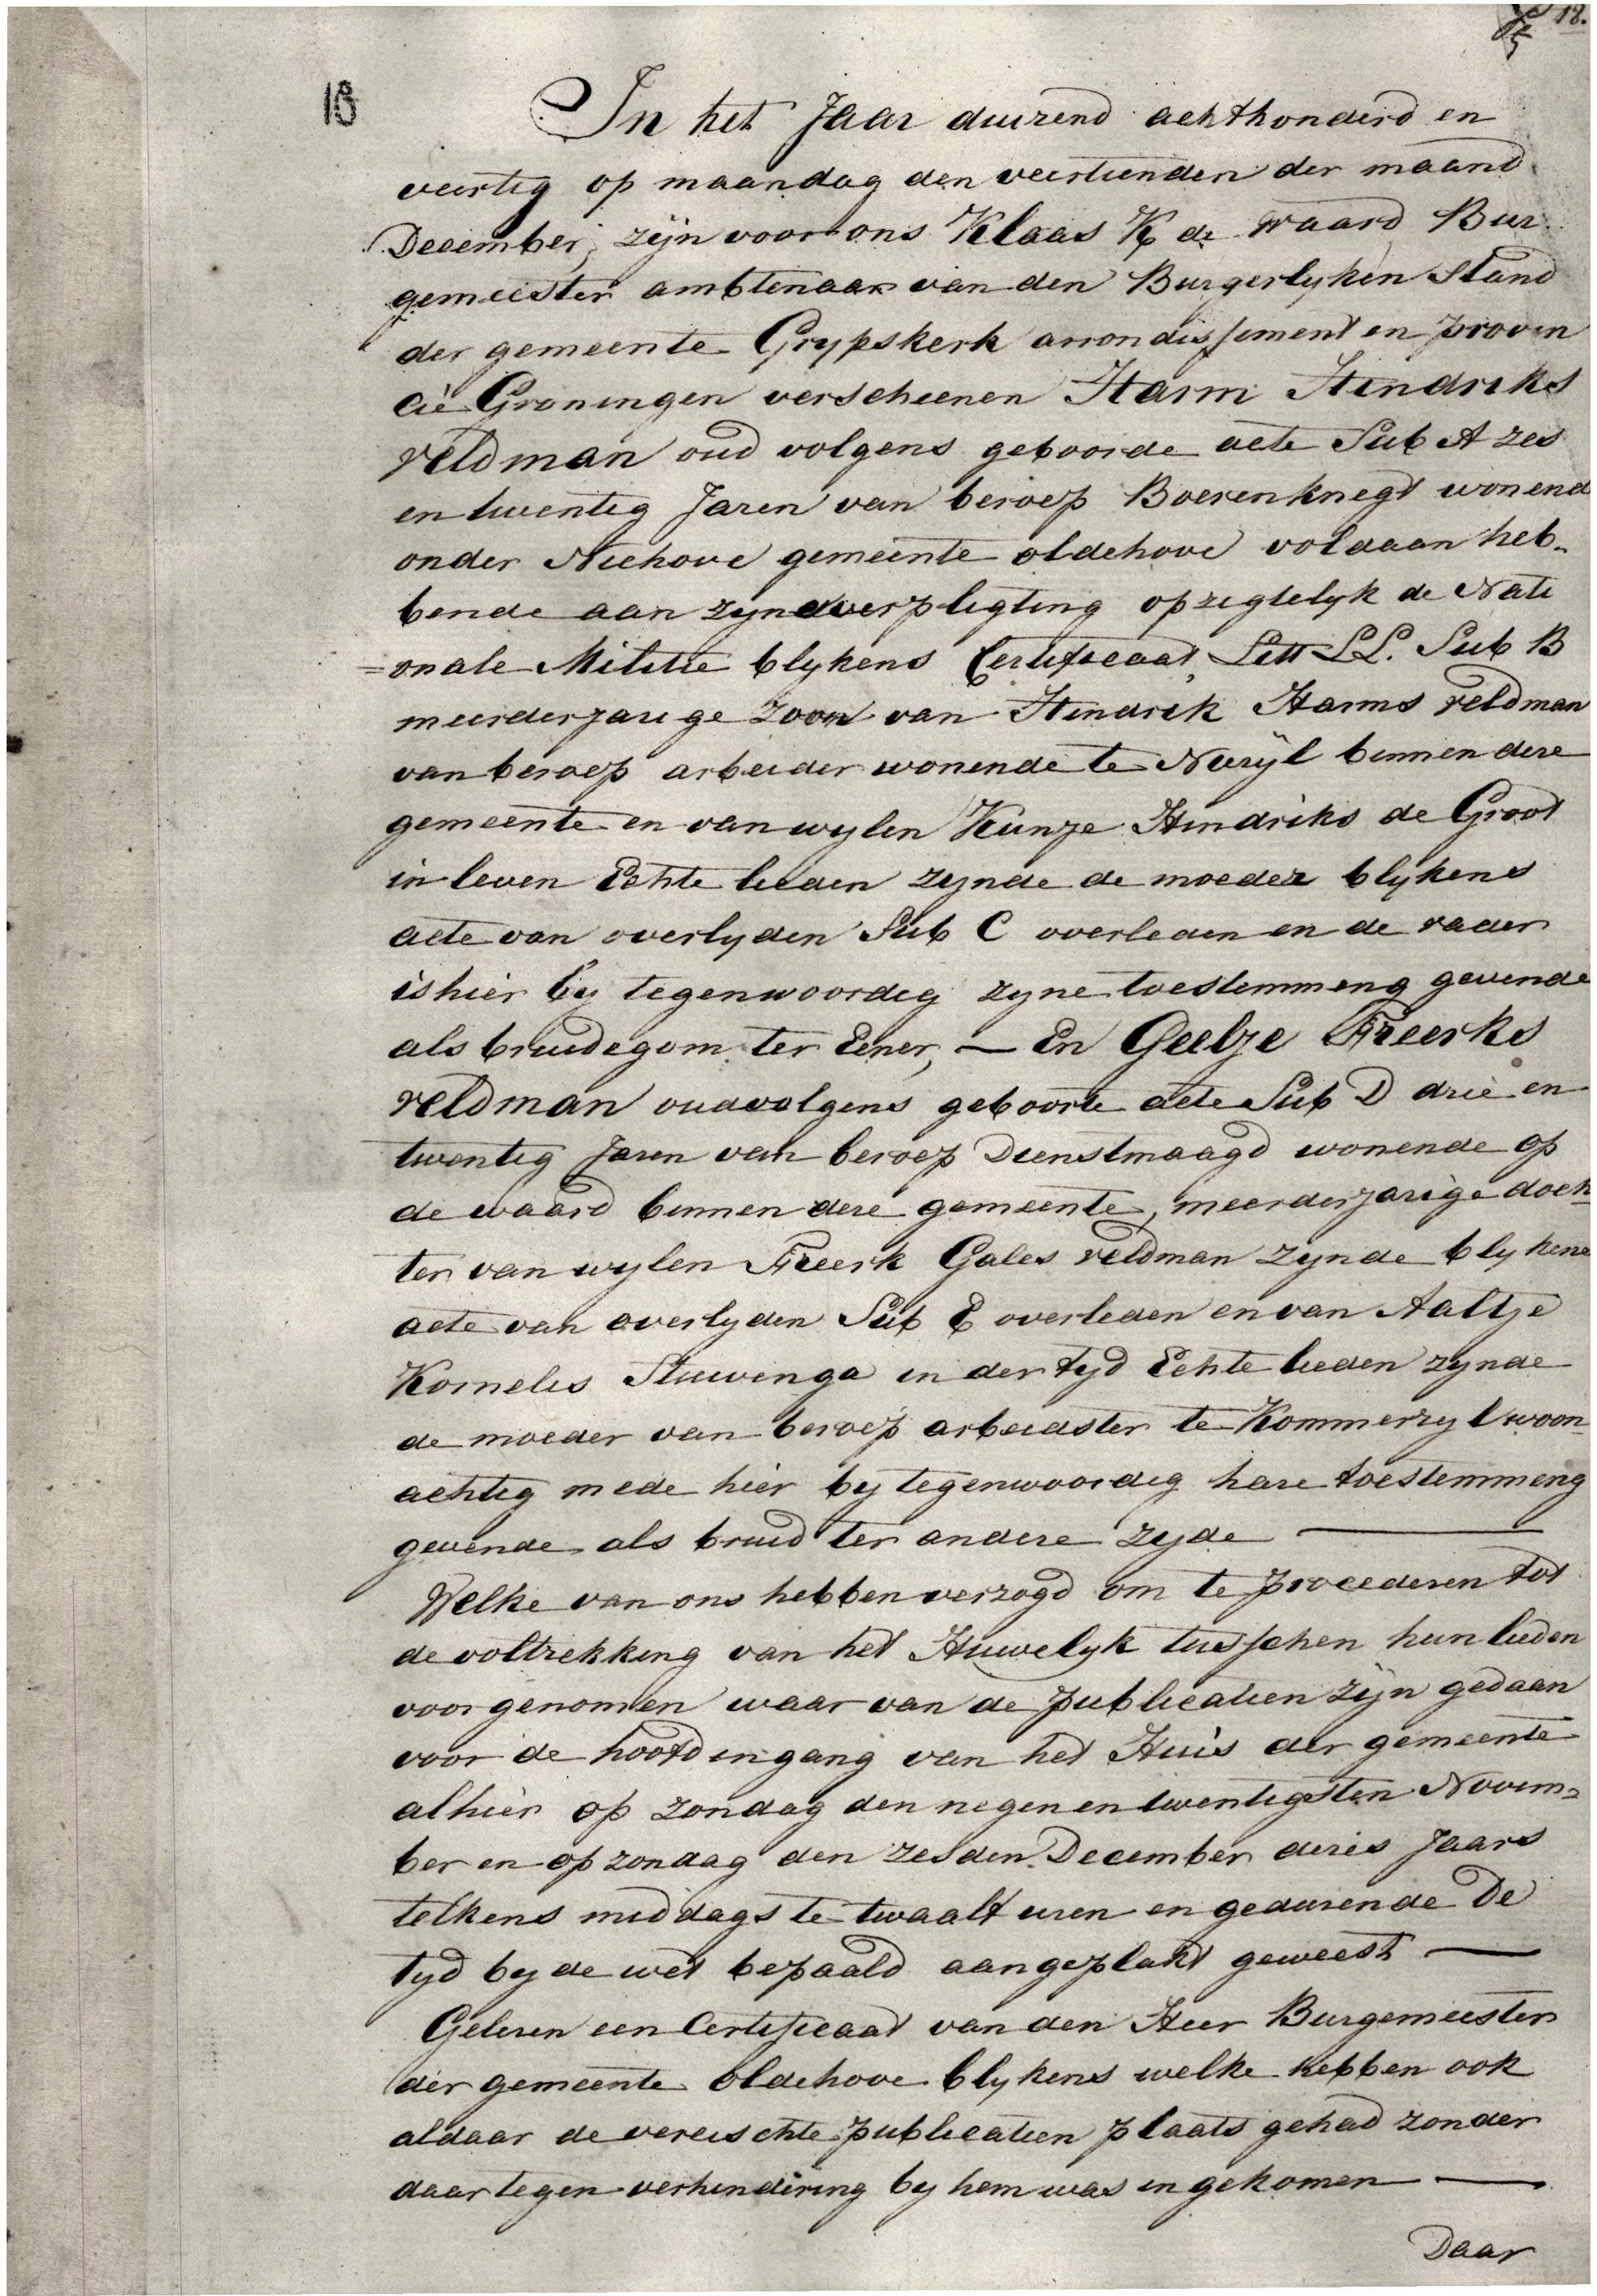 18.
18
In het Jaar duizend achthonderd en
veertig op maandag den veertienden der maand
December, zijn voor ons Klaas K de Waard Bur
gemeester ambtenaar van den Burgerlyken Stand
der gemeente Grypskerk arrondissement en provin
cie Groningen verscheenen Harm Hendriks
Veldman oud volgens geboorde acte Sub A zes
en twentig Jaren van beroep Boerenknegt wonend
onder Niehove gemeente oldehove voldaan heb„
bende aan zyne verpligting opzigtelyk de Nati
=onale Militie blykens Certificaat, Lett LL. Sub B
meerderjarige Zoon van Hendrik Harms Veldman
van beroep arbeider wonende te Niezijl binnen deze
gemeente en van wylen Kunje Hindriks de Groot
in leven Echte lieden zynde de moeder blykens
acte van overlyden Sub C overleden en de vader
is hier by tegenwoordig zyne toestemmeng gevende
als bruidegom ter Eener, — En Geelje Freerks
Veldman oud volgens geboorte acte Sub D drie en
twentig Jaren van beroep Dienstmaagd wonende op
de waard binnen deze gemeente, meerderjarige doch
ter van wylen Freerk Gales Veldman zynde blykens
acte van overlyden Sub E overleden en van Aaltje
Kornelis Stuivenga in der tyd Echte lieden zynde
de moeder van beroep arbeidster te Kommerzyl woon
achtig mede hier by tegenwoordig hare toestemmeng
gevende als bruid ter andere zyde —
Welke van ons hebben verzogd om te procederen tot
de voltrekking van het Huwelyk tusschen hun lieden
voorgenomen waar van de publicatien zijn gedaan
voor de hoofdingang van het Huis der gemeente
alhier op zondag den negen en twentigsten Novem=
ber en op zondag den zesden December dezes Jaars
telkens middags te twaalf uren en gedurende De
tyd by de wet bepaald aangeplakt geweest —
Gelezen een Certificaat van den Heer Burgemeester
der gemeente Oldehove blykens welke hebben ook
aldaar de vereischte publicatien plaats gehad zonder
daar tegen verhindering by hem was ingekomen —
Daar